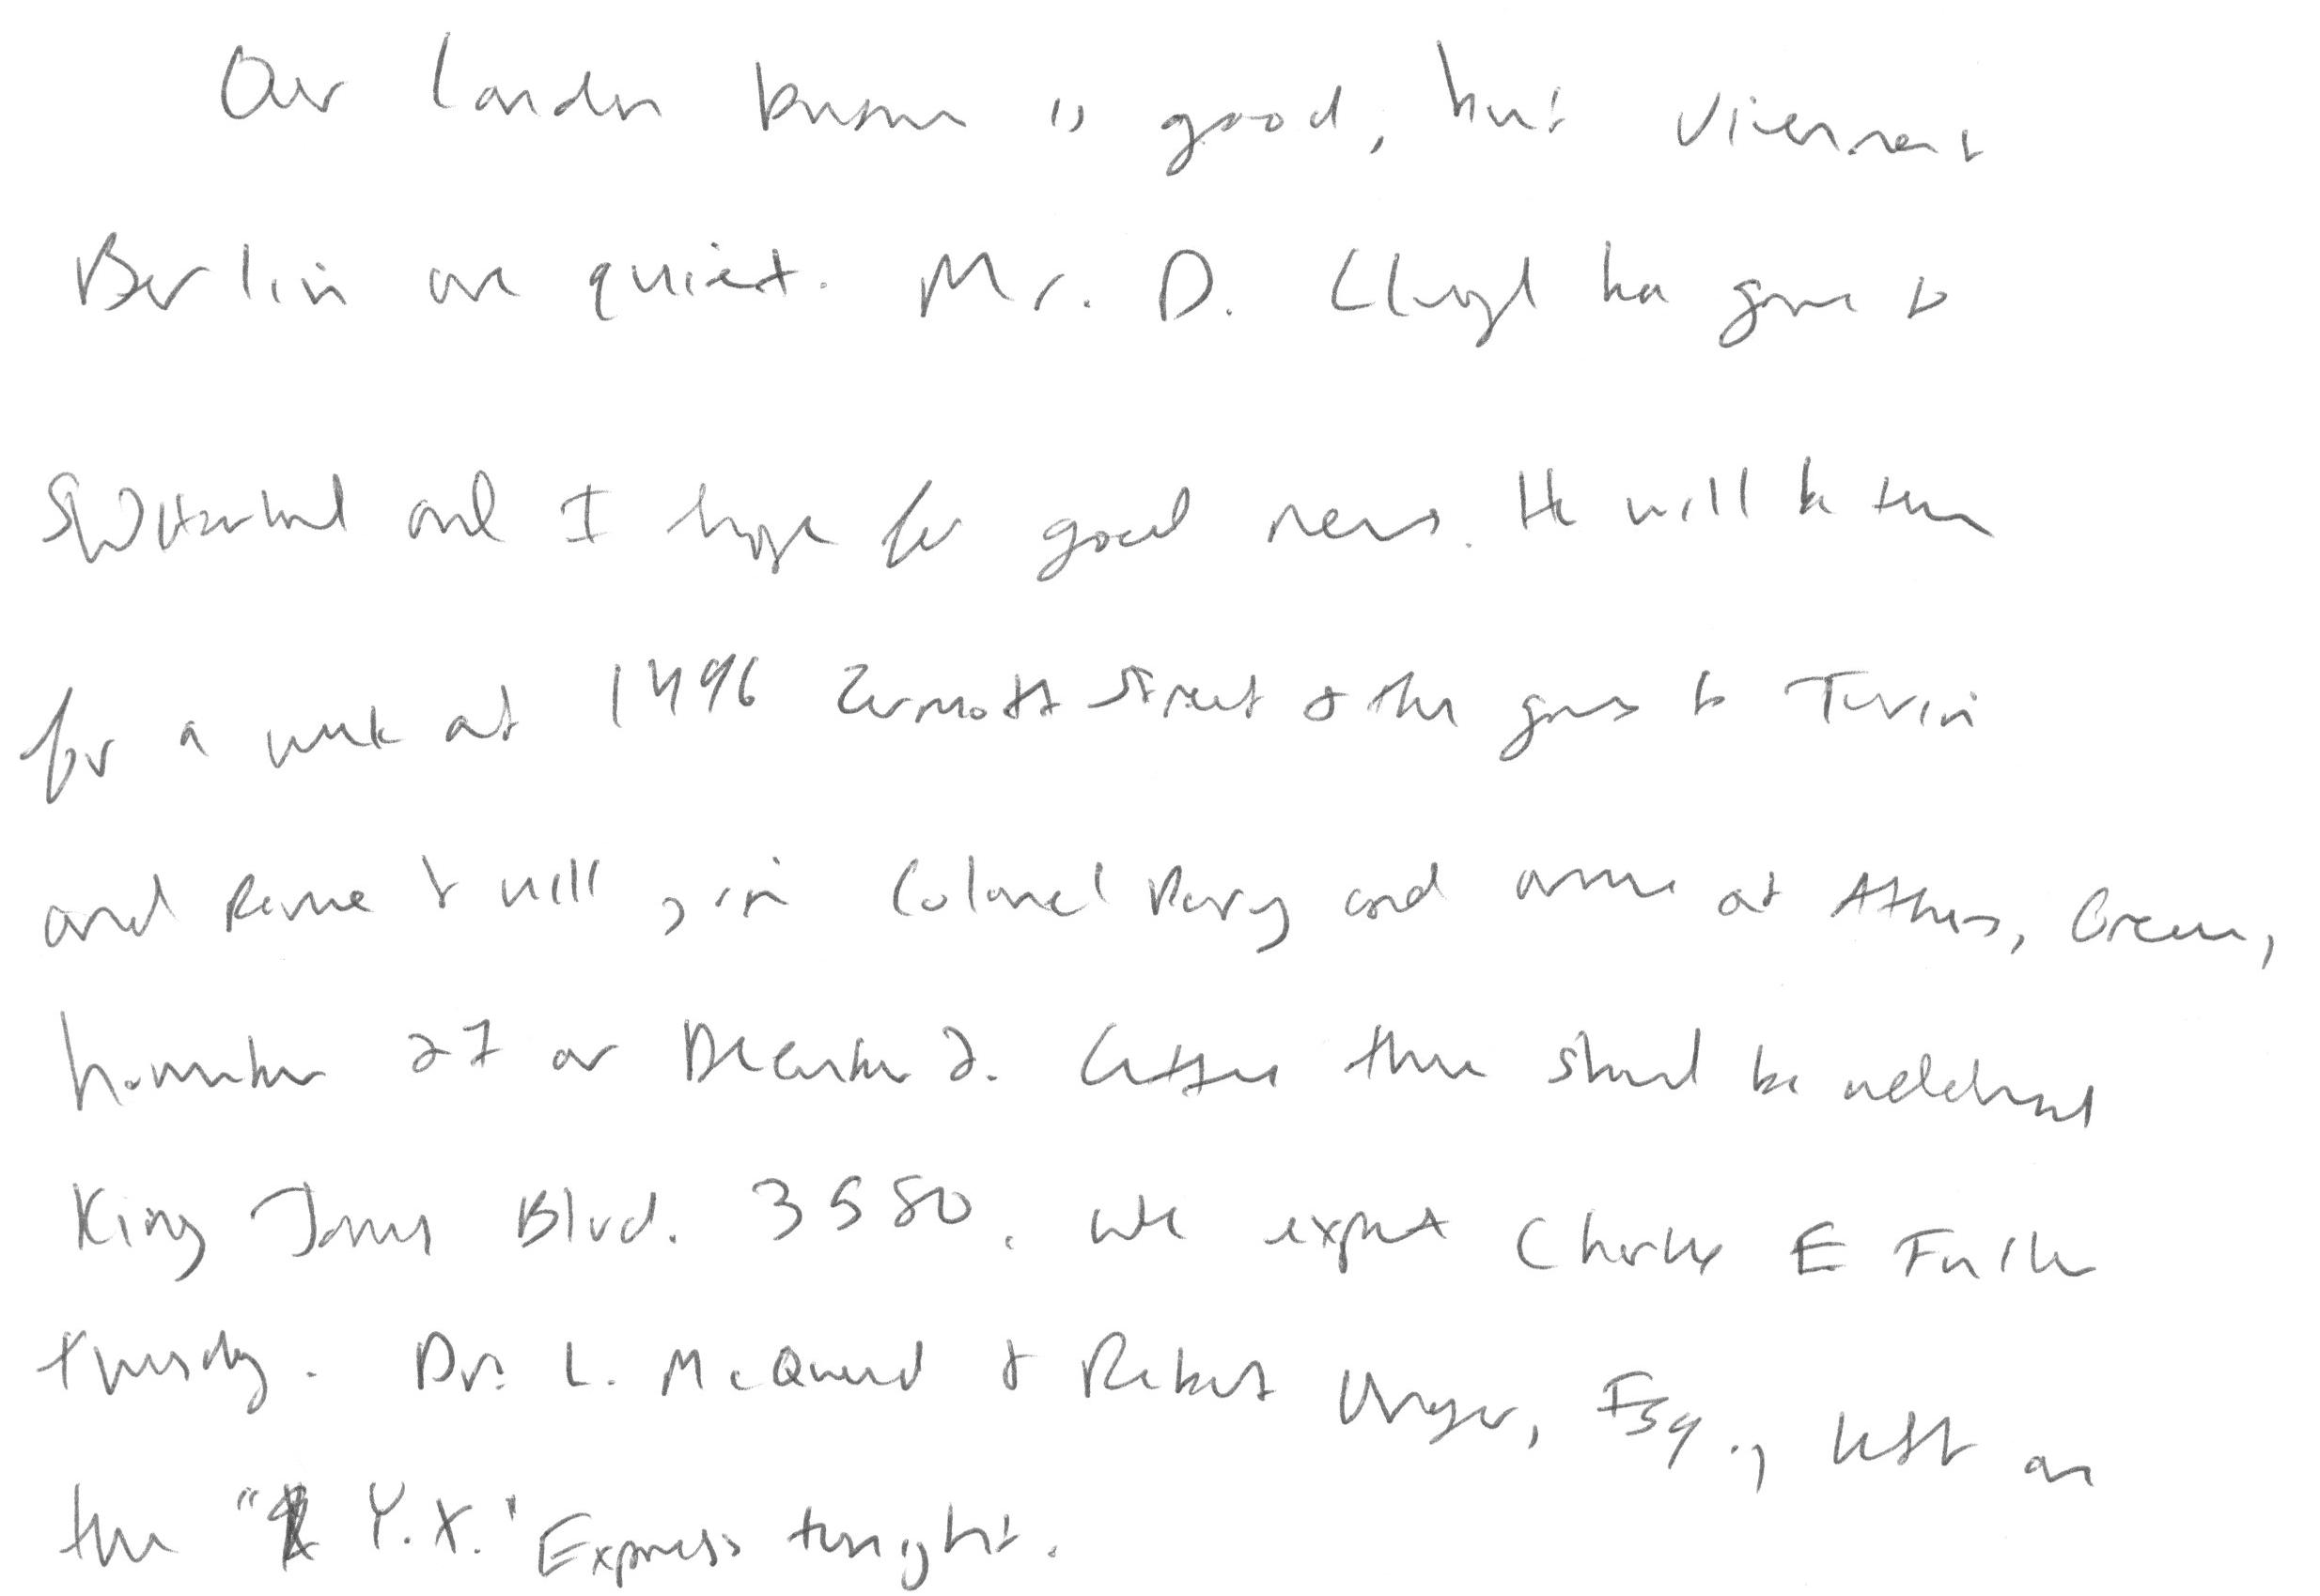 Our London business is good, but Vienna &
Berlin are quiet. Mr. D. Lloyd has gone to
Switzerland and I hope for good news. He will be there
for a week at 1496 Zermott Street & then goes to Turin
and Rome & will join Colonel Parry and arrive at Athens, Greece,
November 27 or December 2. Letters there should be addressed
King James Blvd. 3580. We expect Charles E Fuller
Tuesday. Dr. L. McQuaid & Robert Unger, Esq., left on
the "Y.X." Express tonight.